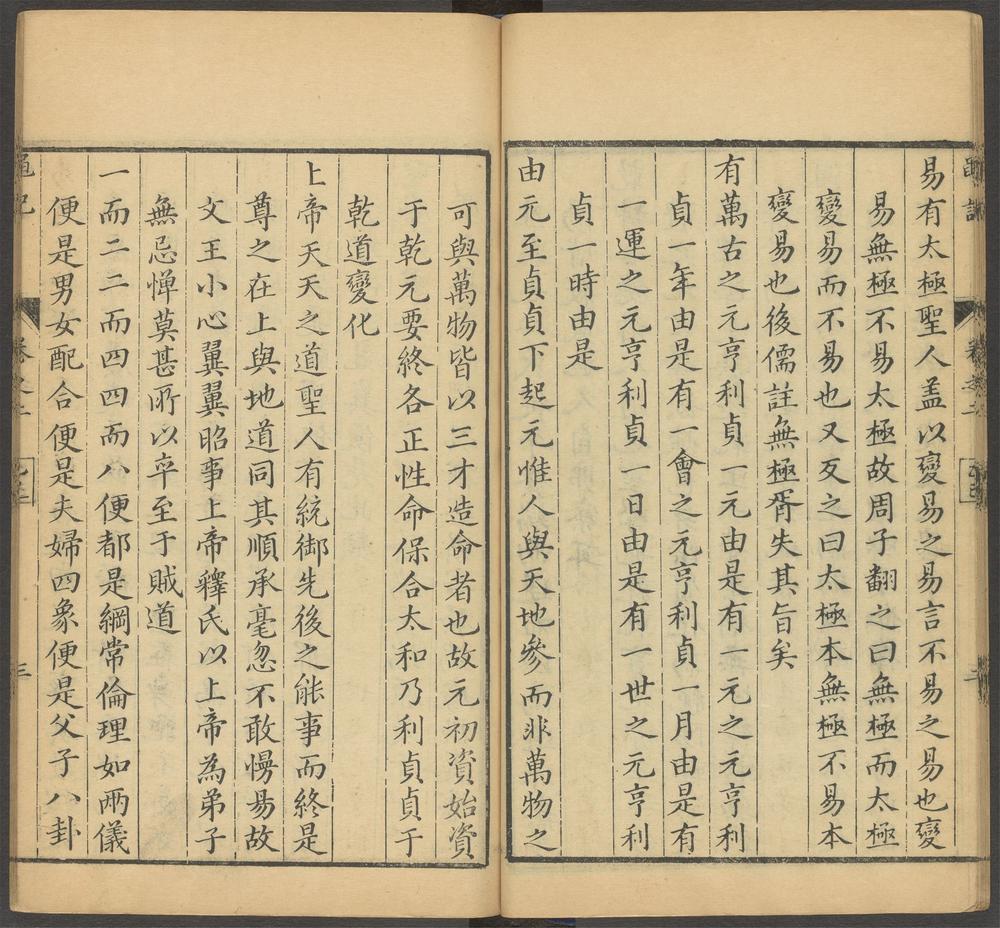 易有太極聖人盖以變易之易言不易之易也變
易無極不易太極故周子翻之曰無極而太極
變易而不易也又反之曰太極本無極不易本
變易也後儒註無極胥失其旨矣
有萬古之元亨利貞一元由是有一元之元亨利
貞一年由是有一會之元亨利貞一月由是有
一運之元亨利貞一日由是有一世之元亨利
貞一時由是
由元至貞貞下起元惟人與天地參而非萬物之
可與萬物皆以三才造命者也故元初資始資
于乾元要終各正性命保合太和乃利貞貞于
乾道變化
上帝天天之道聖人有統御先後之能事而終是
尊之在上與地道同其順承毫忽不敢慢昜故
文王小心翼翼昭事上帝釋氏以上帝為弟子
無忌憚莫甚所以卒至于賊道
一而二二而四四而八便都是綱常倫理如兩儀
便是男女配合便是夫婦四象便是父子八卦